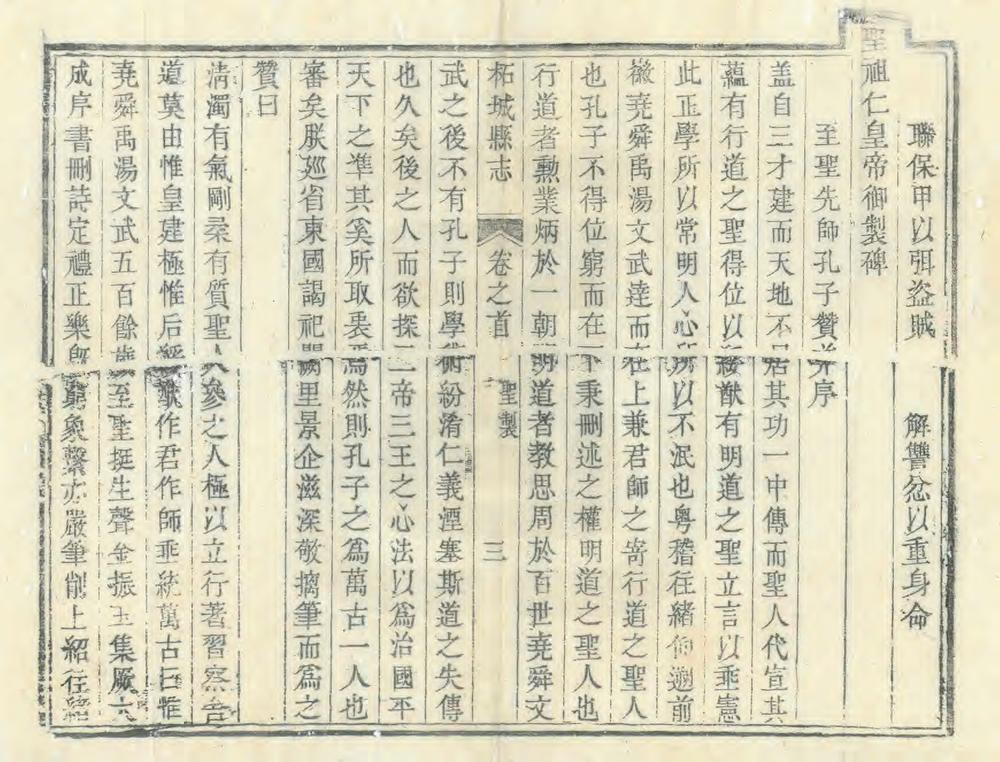 聯保甲以弭盜賊　解讐忿以重身命
聖祖仁皇帝御製碑
至聖先師孔子贊并序
盖自三才建而天地不居其功一中傳而聖人代宣其
蘊有行道之聖得位以綏猷有明道之聖立言以垂憲
此正學所以常明人心所以不泯也粵稽往緒仰遡前
徽堯舜禹湯文武達而在上兼君師之寄行道之聖人
也孔子不得位窮而在下秉刪述之權明道之聖人也
行道者勲業炳於一朝明道者教思周於百世堯舜文
柘城縣志　卷之首　聖製　三
武之後不有孔子則學術紛淆仁義湮塞斯道之失傳
也久矣後之人而欲探二帝三王之心法以爲治國平
天下之準其奚所取衷焉然則孔子之爲萬古一人也
審矣朕巡省東國謁祀闕里景企滋深敬摛筆而爲之
贊曰
清濁有氣剛柔有質聖人參之人極以立行著習察舍
道莫由惟皇建極惟后綏猷作君作師垂統萬古曰惟
堯舜禹湯文武五百餘歲至聖挺生聲金振玉集厥大
成序書刪詩定禮正樂旣窮象繫亦嚴筆削上紹往緒